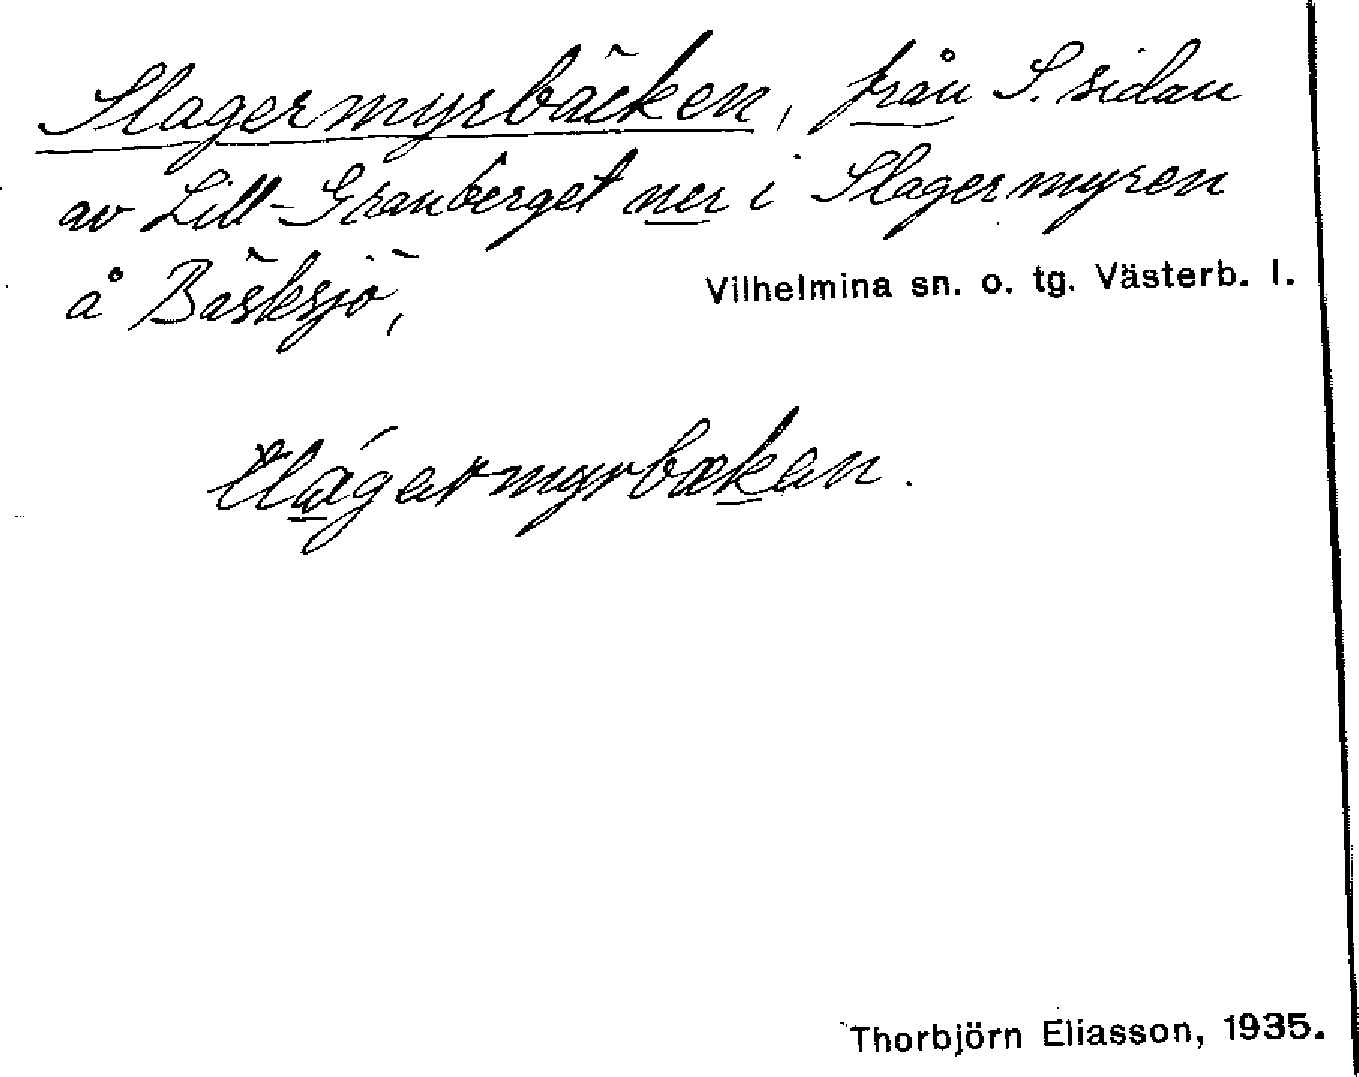 Slagermyrbäcken, från S. sidan
av Lill-Granberget ner i Slagermyren
å Bäsksjö,
Vilhelmina sn. o. tg. Västerb. l.
Thorbjörn Eliasson, 1935.